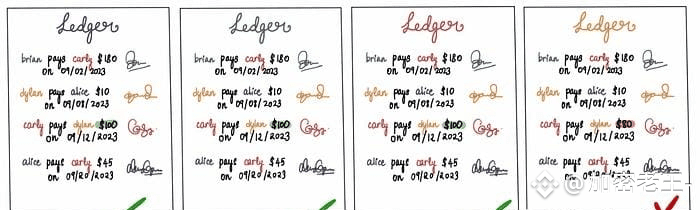 Ledger
brian pays carly $180
on 09/02/2023
dylan pays alice $10
on 09/08/2023
carly pays dylan $100
on 09/12/2023
alice pays carly $45
on 09/20/2023
Ledger
brian pays carly $180
on 09/02/2023
dylan pays alice $10
on 09/08/2023
carly pays dylan $100
on 09/12/2023
alice pays carly $45
on 09/20/2023
Ledger
brian pays carly $180
on 09/02/2023
dylan pays alice $10
on 09/08/2023
carly pays dylan $100
on 09/12/2023
alice pays carly $45
on 09/20/2023
Ledger
brian pays carly $180
on 09/02/2023
dylan pays alice $10
on 09/08/2023
carly pays dylan $80
on 09/12/2023
alice pays carly $45
@加密老王